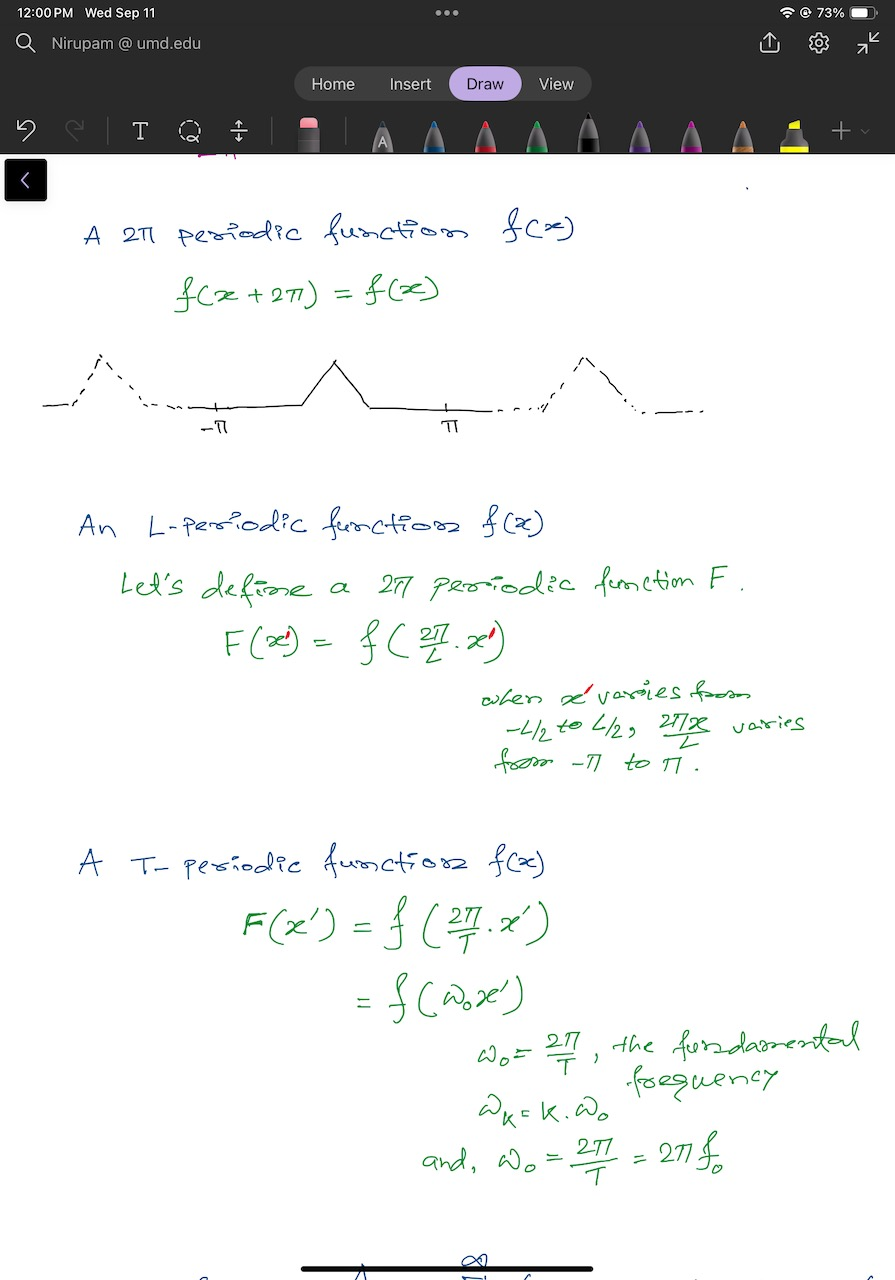 12:00 PM Wed Sep 11
73%
Nirupam @ umd.edu
Home Insert Draw View
T
A
A 2π periodic function f(x)
f(x + 2π) = f(x)
-π π
An L-periodic function f(x)
Let's define a 2π periodic function F.
F(x') = f(2π/L · x')
when x' varies from
-L/2 to L/2, 2πx/L varies
from -π to π.
A T- periodic function f(x)
F(x') = f(2π/T · x')
= f(ω₀x')
ω₀ = 2π/T, the fundamental
frequency
ωₖ = k.ω₀
and, ω₀ = 2π/T = 2πf₀
∞